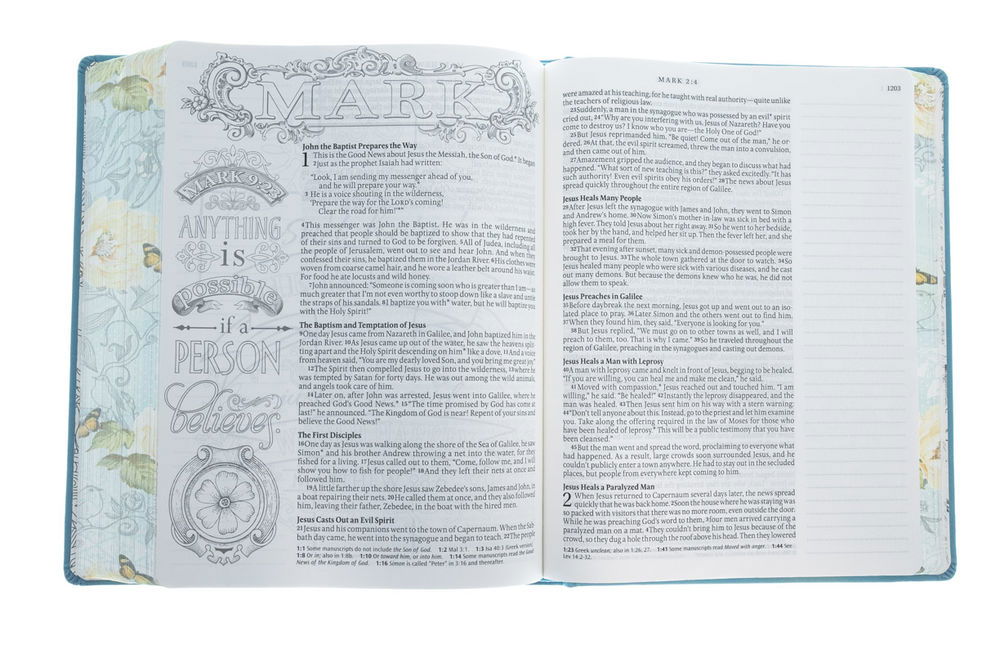 MARK
MARK 9:23
ANYTHING
is
possible
if a
PERSON
believes.
John the Baptist Prepares the Way
1 This is the Good News about Jesus the Messiah, the Son of God.* It began
2just as the prophet Isaiah had written:
"Look, I am sending my messenger ahead of you,
and he will prepare your way.*
3 He is a voice shouting in the wilderness,
'Prepare the way for the LORD's coming!
Clear the road for him!'*"
4This messenger was John the Baptist. He was in the wilderness and
preached that people should be baptized to show that they had repented
of their sins and turned to God to be forgiven. 5All of Judea, including all
the people of Jerusalem, went out to see and hear John. And when they
confessed their sins, he baptized them in the Jordan River. 6His clothes were
woven from coarse camel hair, and he wore a leather belt around his waist.
For food he ate locusts and wild honey.
7John announced: "Someone is coming soon who is greater than I am—so
much greater that I'm not even worthy to stoop down like a slave and untie
the straps of his sandals. 8I baptize you with* water, but he will baptize you
with the Holy Spirit!"
The Baptism and Temptation of Jesus
9One day Jesus came from Nazareth in Galilee, and John baptized him in the
Jordan River. 10As Jesus came up out of the water, he saw the heavens split-
ting apart and the Holy Spirit descending on him* like a dove. 11And a voice
from heaven said, "You are my dearly loved Son, and you bring me great joy."
12The Spirit then compelled Jesus to go into the wilderness, 13where he
was tempted by Satan for forty days. He was out among the wild animals,
and angels took care of him.
14Later on, after John was arrested, Jesus went into Galilee, where he
preached God's Good News.* 15"The time promised by God has come at
last!" he announced. "The Kingdom of God is near! Repent of your sins and
believe the Good News!"
The First Disciples
16One day as Jesus was walking along the shore of the Sea of Galilee, he saw
Simon* and his brother Andrew throwing a net into the water, for they
fished for a living. 17Jesus called out to them, "Come, follow me, and I will
show you how to fish for people!" 18And they left their nets at once and
followed him.
19A little farther up the shore Jesus saw Zebedee's sons, James and John, in
a boat repairing their nets. 20He called them at once, and they also followed
him, leaving their father, Zebedee, in the boat with the hired men.
Jesus Casts Out an Evil Spirit
21Jesus and his companions went to the town of Capernaum. When the Sab-
bath day came, he went into the synagogue and began to teach. 22The people
1:1 Some manuscripts do not include the Son of God. 1:2 Mal 3:1. 1:3 Isa 40:3 (Greek version).
1:8 Or in; also in 1:8b. 1:10 Or toward him, or into him. 1:14 Some manuscripts read the Good
News of the Kingdom of God. 1:16 Simon is called "Peter" in 3:16 and thereafter.
MARK 2:4
1203
were amazed at his teaching, for he taught with real authority—quite unlike
the teachers of religious law.
23Suddenly, a man in the synagogue who was possessed by an evil* spirit
cried out, 24"Why are you interfering with us, Jesus of Nazareth? Have you
come to destroy us? I know who you are—the Holy One of God!"
25But Jesus reprimanded him. "Be quiet! Come out of the man," he or-
dered. 26At that, the evil spirit screamed, threw the man into a convulsion,
and then came out of him.
27Amazement gripped the audience, and they began to discuss what had
happened. "What sort of new teaching is this?" they asked excitedly. "It has
such authority! Even evil spirits obey his orders!" 28The news about Jesus
spread quickly throughout the entire region of Galilee.
Jesus Heals Many People
29After Jesus left the synagogue with James and John, they went to Simon
and Andrew's home. 30Now Simon's mother-in-law was sick in bed with a
high fever. They told Jesus about her right away. 31So he went to her bedside,
took her by the hand, and helped her sit up. Then the fever left her, and she
prepared a meal for them.
32That evening after sunset, many sick and demon-possessed people were
brought to Jesus. 33The whole town gathered at the door to watch. 34So
Jesus healed many people who were sick with various diseases, and he cast
out many demons. But because the demons knew who he was, he did not
allow them to speak.
Jesus Preaches in Galilee
35Before daybreak the next morning, Jesus got up and went out to an iso-
lated place to pray. 36Later Simon and the others went out to find him.
37When they found him, they said, "Everyone is looking for you."
38But Jesus replied, "We must go on to other towns as well, and I will
preach to them, too. That is why I came." 39So he traveled throughout the
region of Galilee, preaching in the synagogues and casting out demons.
Jesus Heals a Man with Leprosy
40A man with leprosy came and knelt in front of Jesus, begging to be healed.
"If you are willing, you can heal me and make me clean," he said.
41Moved with compassion,* Jesus reached out and touched him. "I am
willing," he said. "Be healed!" 42Instantly the leprosy disappeared, and the
man was healed. 43Then Jesus sent him on his way with a stern warning:
44"Don't tell anyone about this. Instead, go to the priest and let him examine
you. Take along the offering required in the law of Moses for those who
have been healed of leprosy.* This will be a public testimony that you have
been cleansed."
45But the man went and spread the word, proclaiming to everyone what
had happened. As a result, large crowds soon surrounded Jesus, and he
couldn't publicly enter a town anywhere. He had to stay out in the secluded
places, but people from everywhere kept coming to him.
Jesus Heals a Paralyzed Man
2 When Jesus returned to Capernaum several days later, the news spread
quickly that he was back home. 2Soon the house where he was staying was
so packed with visitors that there was no more room, even outside the door.
While he was preaching God's word to them, 3four men arrived carrying a
paralyzed man on a mat. 4They couldn't bring him to Jesus because of the
crowd, so they dug a hole through the roof above his head. Then they lowered
1:23 Greek unclean; also in 1:26, 27. 1:41 Some manuscripts read Moved with anger. 1:44 See
Lev 14:2-32.